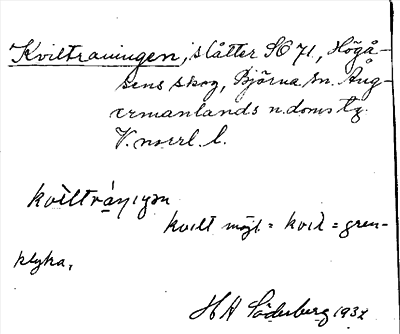 Kviltraningen, slåtter SO 71, Högå-
sens skog, Björna sn. Ång-
ermanlands n. doms tg.
V. norrl. l.
kvilt möjl = kvil = gren-
klyka,
H H Söderberg 1932